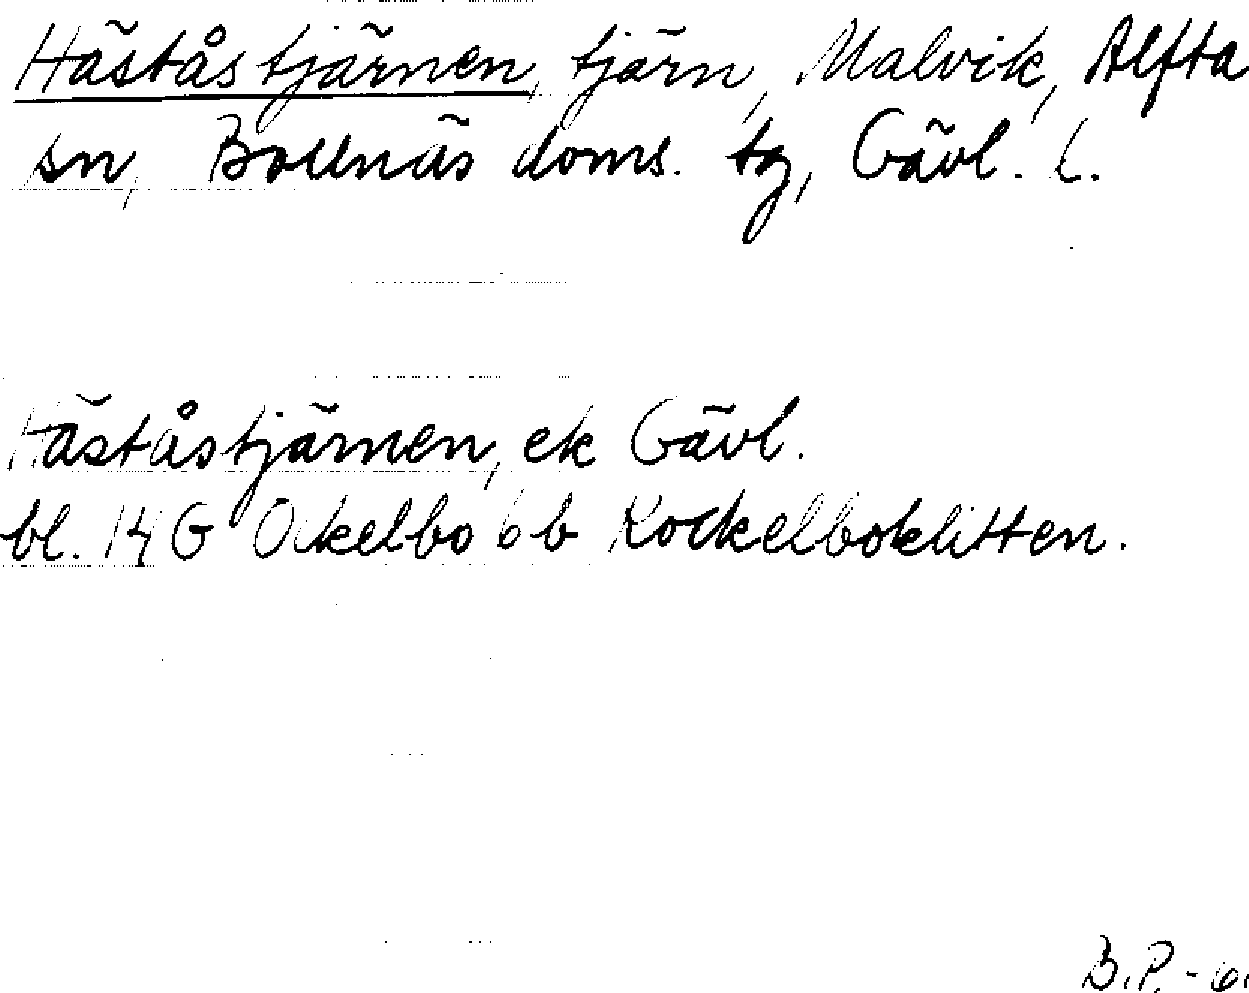 Häståstjärnen, tjärn, Malvik, Alfta
sn, Bollnäs doms. tg, Gävl. l.
Häståstjärnen, ek Gävl.
bl. 14 G Ockelbo 6 b Rockelboklitten.
B.P. - 6